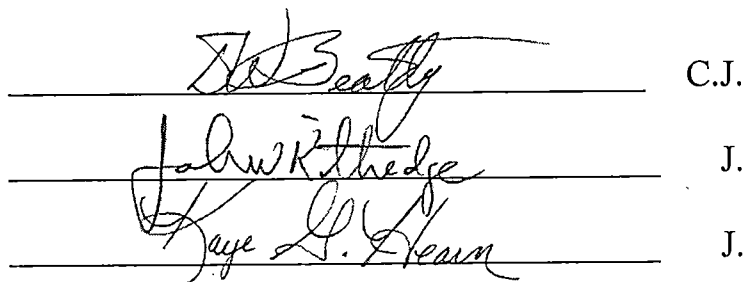 DW Beatty C.J.
John W Kittredge J.
Kaye G. Hearn J.